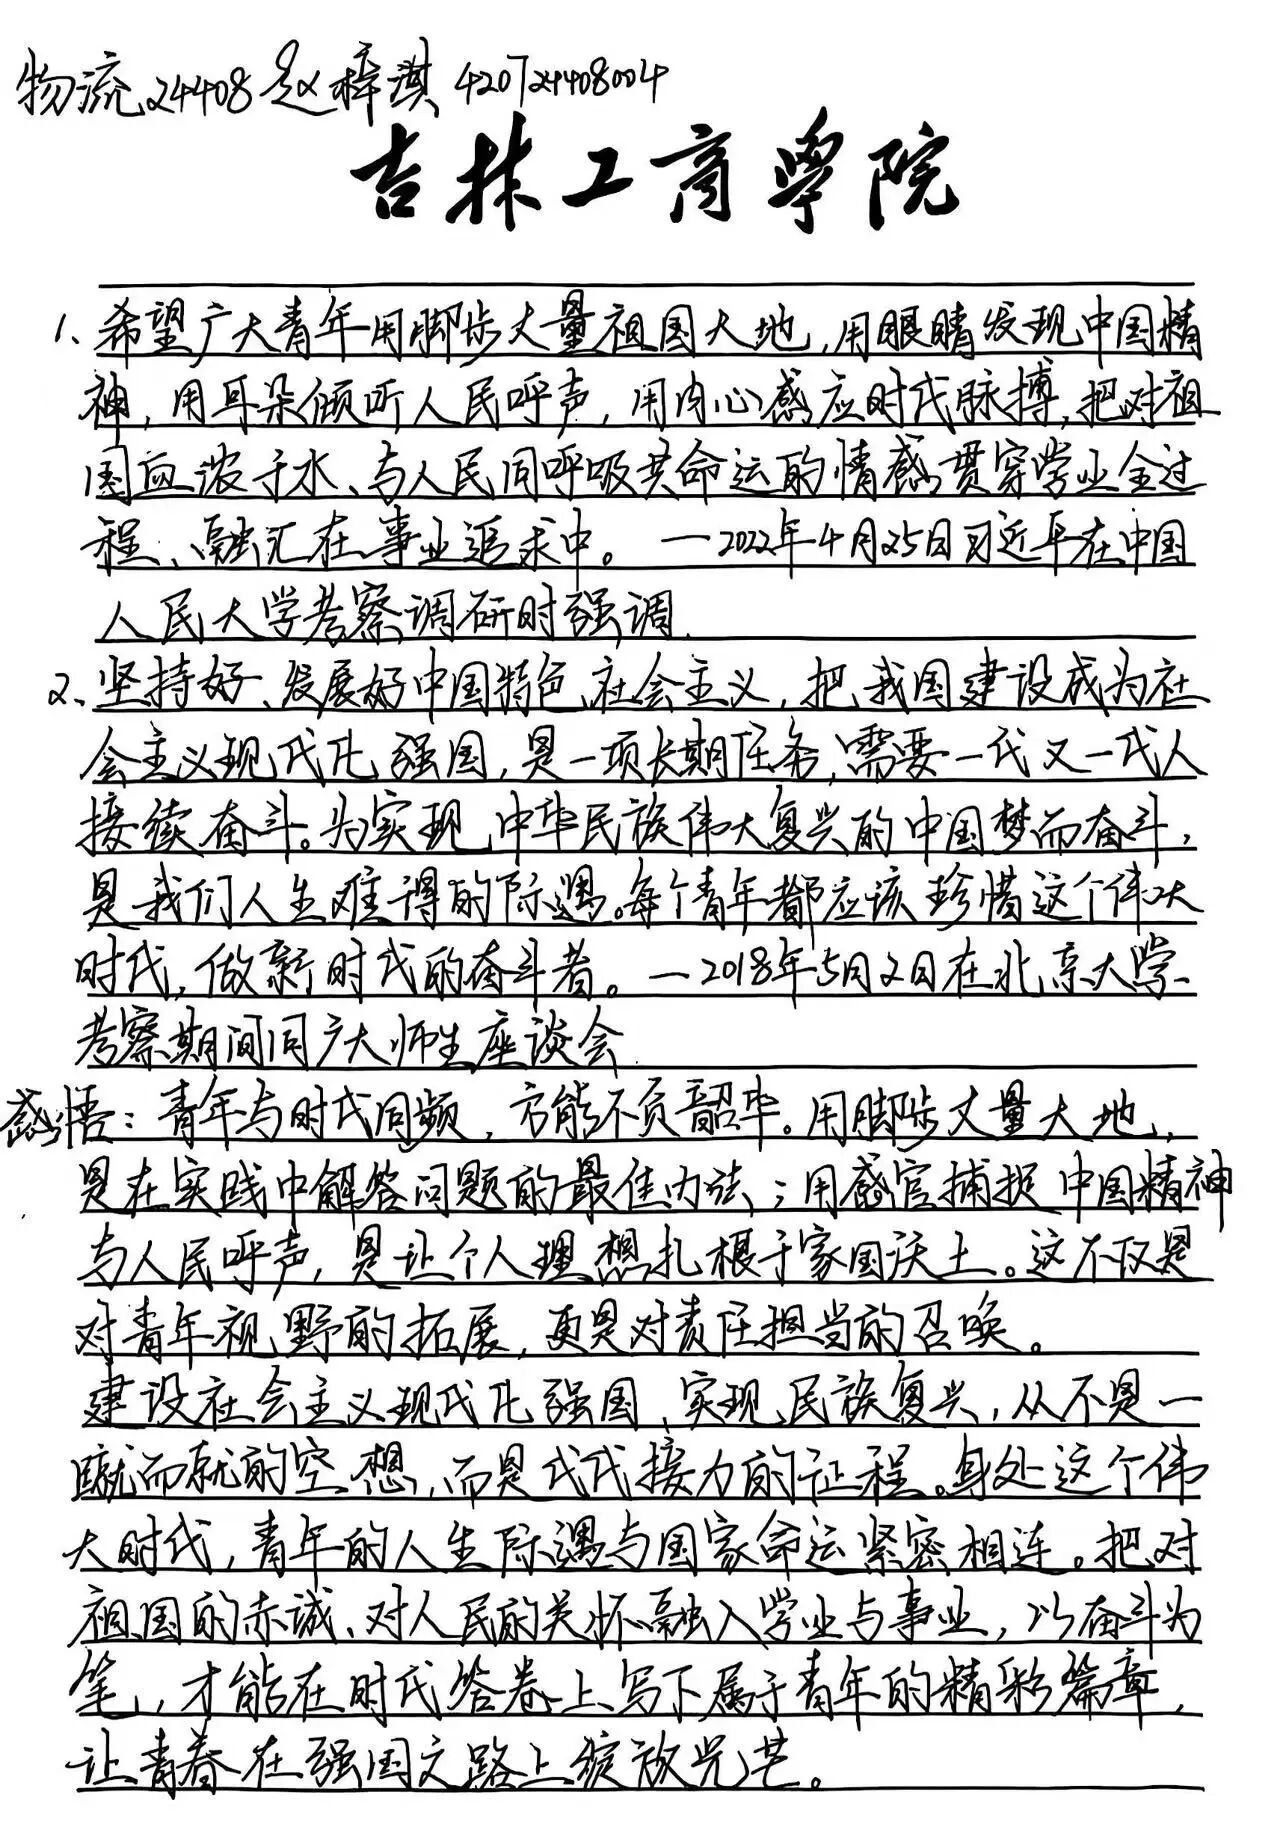 物流24408 赵梓淇 420724408004
吉林工商学院
1、希望广大青年用脚步丈量祖国大地,用眼睛发现中国精
神,用耳朵倾听人民呼声,用内心感应时代脉搏,把对祖
国血浓于水、与人民同呼吸共命运的情感贯穿学业全过
程、融汇在事业追求中。—2022年4月25日习近平在中国
人民大学考察调研时强调.
2、坚持好、发展好中国特色社会主义,把我国建设成为社
会主义现代化强国,是一项长期任务,需要一代又一代人
接续奋斗。为实现中华民族伟大复兴的中国梦而奋斗,
是我们人生难得的际遇。每个青年都应该珍惜这个伟大
时代,做新时代的奋斗者。—2018年5月2日在北京大学
考察期间同广大师生座谈会
感悟:青年与时代同频,方能不负韶华。用脚步丈量大地,
是在实践中解答问题的最佳办法;用感官捕捉中国精神
与人民呼声,是让个人理想扎根于家国沃土。这不仅是
对青年视野的拓展,更是对责任担当的召唤。
建设社会主义现代化强国,实现民族复兴,从不是一
蹴而就的空想,而是代代接力的征程。身处这个伟
大时代,青年的人生际遇与国家命运紧密相连。把对
祖国的赤诚、对人民的关怀融入学业与事业,以奋斗为
笔,才能在时代答卷上写下属于青年的精彩篇章,
让青春在强国之路上绽放光芒。